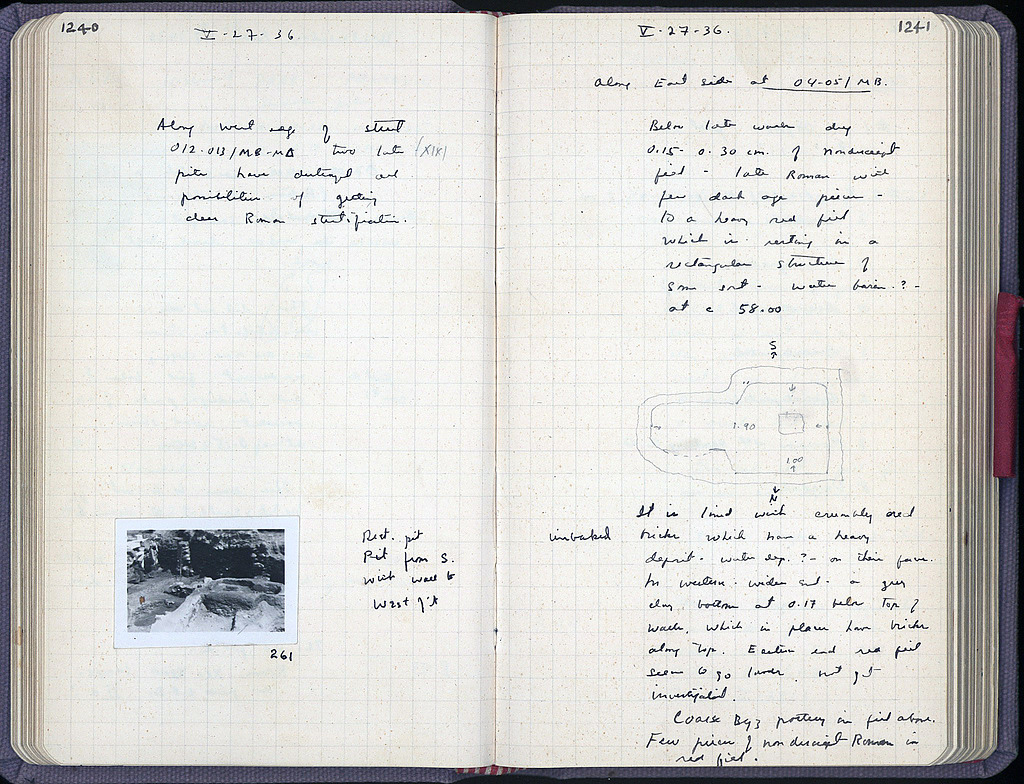 1240
V-27-36
Along west edge of street
012-013/MB-MΔ two late (XIX)
pits have destroyed all
possibilities of getting
clear Roman stratification.
Rect. pit
Pit from S.
with wall to
West of it
261
1241
V-27-36.
Along East side at 04-05/MB.
Below late walls dug
0.15-0.30 cm. of nondescript
fill - late Roman with
few dark age pieces -
to a heavy red fill
which is resting in a
rectangular structure of
some sort - water basin? -
at c 58.00
S
1.90
1.00
N
It is lined with crumbly red
unbaked bricks which have a heavy
deposit - water dep.? - on their faces.
In western - wider end - a grey
clay bottom at 0.17 below top of
walls, which in places have bricks
along top. Eastern end red fill
seems to go lower, not yet
investigated.
Coarse Byz pottery in fill above.
Few pieces of nondescript Roman in
red fill.